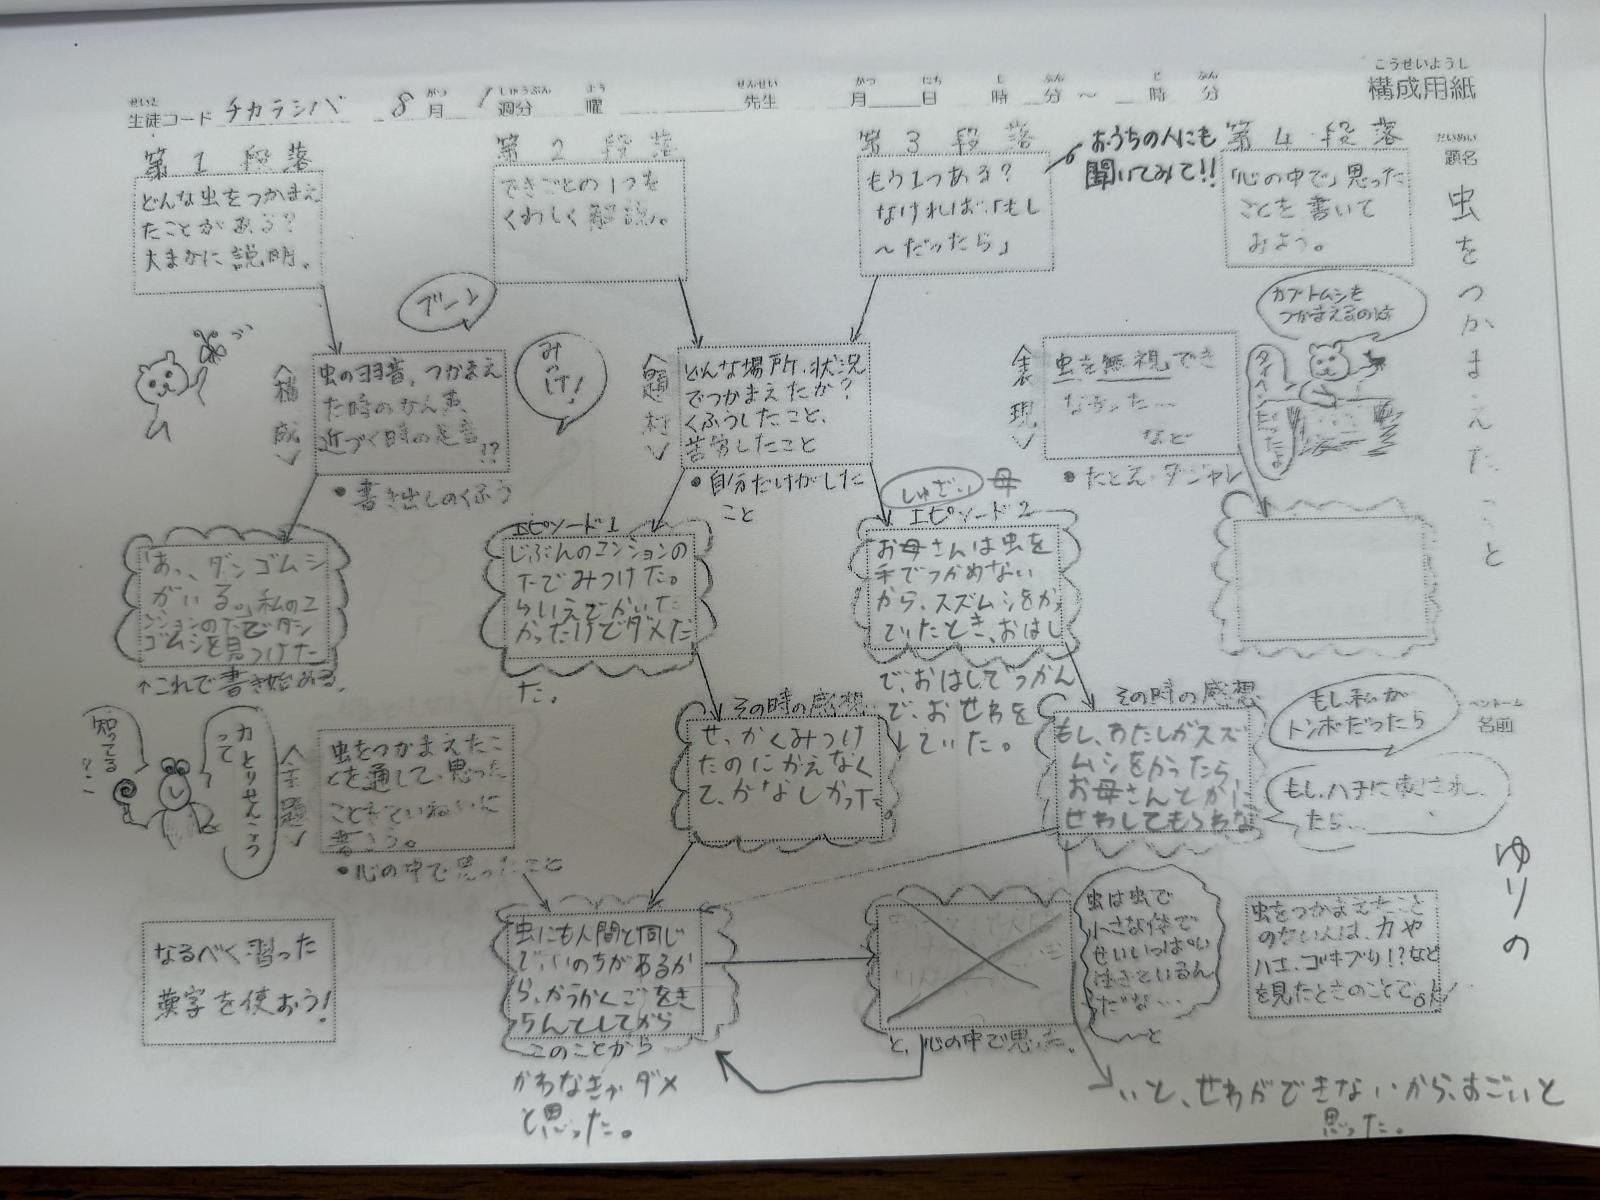 こうせいようし
構成用紙
せいと
生徒コード チカラシバ 8月 1週分 曜 先生 月 日 時 分 ～ 時 分
がつ しゅうぶん よう せんせい がつ にち じ ふん じ ふん
だいめい
題名
虫をつかまえたこと
ペンネーム
名前
ゆりの
第1段落
どんな虫をつかまえ
たことがある?
大まかに説明。
第2段落
できごとの1つを
くわしく解説。
第3段落
もう1つある?
なければ、「もし
～だったら」
おうちの人にも
聞いてみて!!
第4段落
「心の中で」思った
ことを書いて
みよう。
ブーン
〈構成〉
虫の羽音、つかまえ
た時のかん声、
近づく時の足音
!?
●書き出しのくふう
みっけ!
〈題材〉
どんな場所、状況
でつかまえたか?
くふうしたこと、
苦労したこと
●自分だけがした
こと
〈表現〉
虫を無視でき
なかった…
など
●たとえ・ダジャレ
カブトムシを
つかまえるのは
タイヘンだったよ
あ、ダンゴムシ
がいる。私のマ
ンションの下でダン
ゴムシを見つけた
↑これで書き始める。
エピソード1
じぶんのマンションの
下でみつけた。
らいえでかいた
かったけでダメだ
た。
しゅざい 母
エピソード2
お母さんは虫を
手でつかめない
から、スズムシをかっ
ていたとき、おはし
で、おはしでつかん
で、おせわを
していた。
その時の感想
せ、かくみつけ
たのにかえなく
て、かなしかった。
その時の感想
もし、わたしがスズ
ムシをかったら、
お母さんとかに
せわしてもらわな
いと、せわができないから、すごいと
思った。
もし私が
トンボだったら
もし、ハチに刺され
たら…
知ってる
?
カとりせんこう
って
〈主題〉
虫をつかまえたこ
とを通して、思った
ことをていねいに
書こう。
●心の中で思ったこと
なるべく習った
漢字を使おう!
虫にも人間と同じ
で、いのちがあるか
ら、かうかくごをき
ちんとしてから
このことから
かわなきゃダメ
と思った。
と、心の中で思った。
虫は虫で
小さな体で
せいいっぱい
生きているん
だな…
～と
虫をつかまえたこと
のない人は、カや
ハエ、ゴキブリ!?など
を見たときのことでOK!